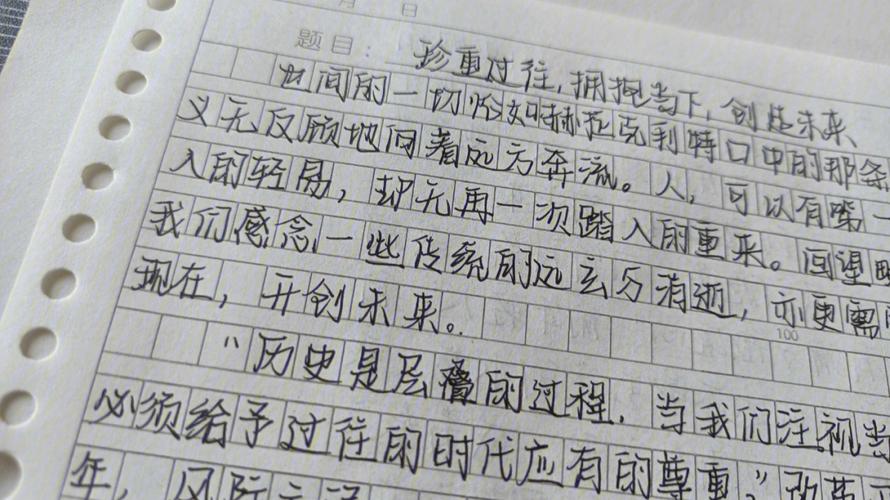 月 日
题目： 珍重过往，拥抱当下，创造未来
世间的一切恰如赫拉克利特口中的那条
义无反顾地向着远方奔流。人，可以有踏一
入的轻易，却无再一次踏入的重来。回望
我们感念一些传统的远去与消逝，亦更需
现在，开创未来。
100
“历史是层叠的过程，当我们注视当
必须给予过往的时代应有的尊重。”
年，风